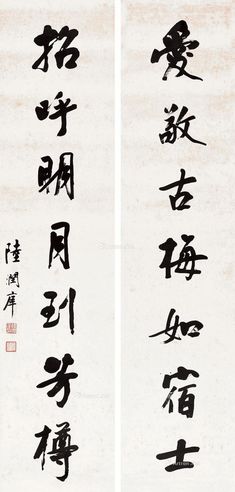 愛敬古梅如宿士
招呼明月到芳樽
陸潤庠